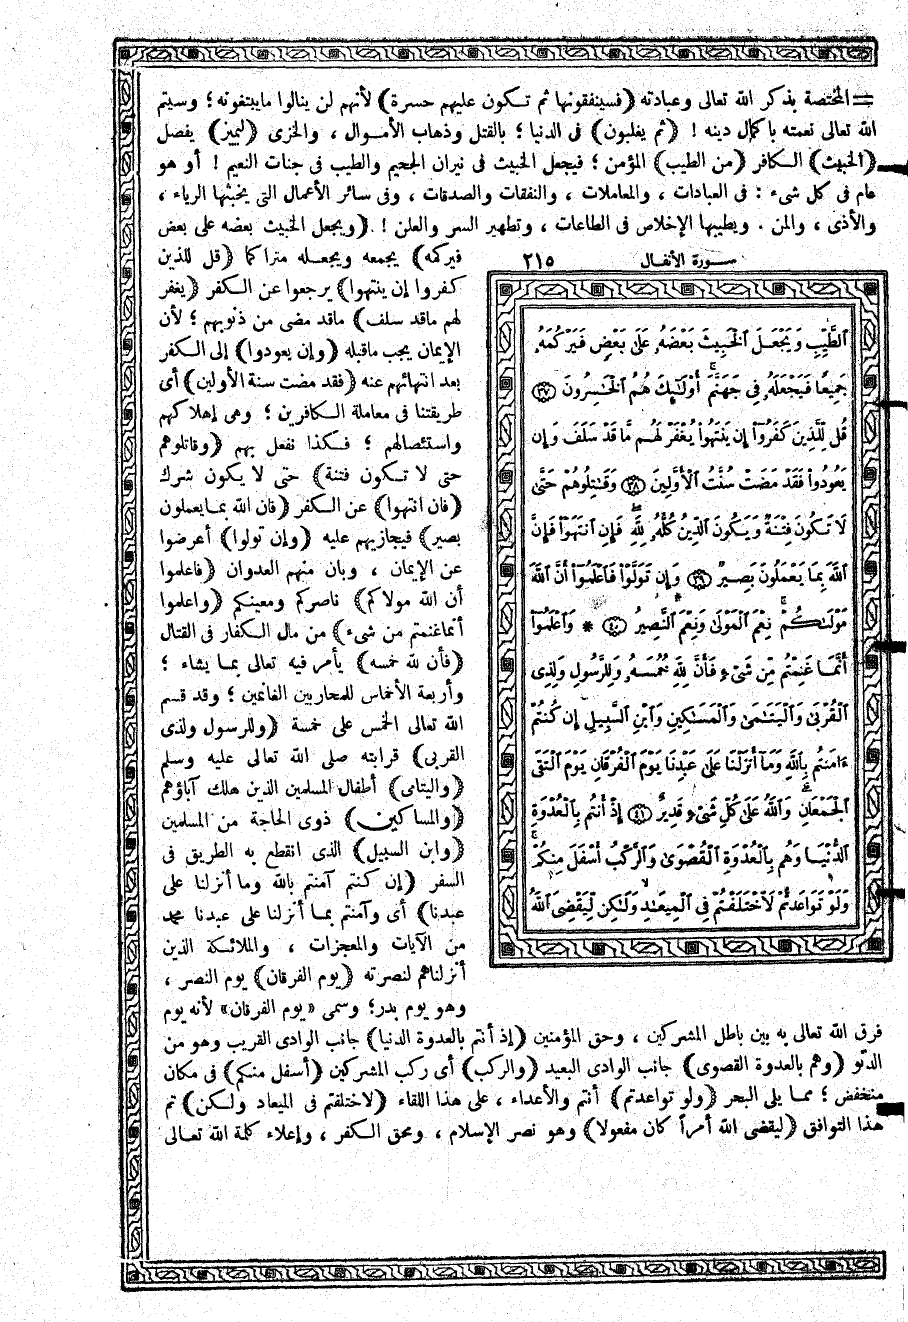 = المختصة بذكر الله تعالى وعبادته (فسينفقونها ثم تكون عليهم حسرة) لأنهم لن ينالوا مايبتغونه ؛ وسيتم
الله تعالى نعمته باكمال دينه ! (ثم يغلبون) فى الدنيا ؛ بالقتل وذهاب الأموال ، والخزى (ليميز) يفصل
(الخبيث) الكافر (من الطيب) المؤمن ؛ فيجعل الخبيث فى نيران الجحيم والطيب فى جنات النعيم ! أو هو
عام فى كل شىء : فى العبادات ، والمعاملات ، والنفقات والصدقات ، وفى سائر الأعمال التى يخبثها الرياء ،
والأذى ، والمن . ويطيبها الإخلاص فى الطاعات ، وتطهير السر والعلن ! (ويجعل الخبيث بعضه على بعض
فيركمه) يجمعه ويجعله متراكما (قل للذين
كفروا إن ينتهوا) يرجعوا عن الكفر (يغفر
لهم ماقد سلف) ماقد مضى من ذنوبهم ؛ لأن
الإيمان يجب ماقبله (وإن يعودوا) إلى الكفر
بعد انتهائهم عنه (فقد مضت سنة الأولين) أى
طريقتنا فى معاملة الكافرين ؛ وهى إهلاكهم
واستئصالهم ؛ فكذا نفعل بهم (وقاتلوهم
حتى لا تكون فتنة) حتى لا يكون شرك
(فان انتهوا) عن الكفر (فان الله بما يعملون
بصير) فيجازيهم عليه (وإن تولوا) أعرضوا
عن الإيمان ، وبان منهم العدوان (فاعلموا
أن الله مولاكم) ناصركم ومعينكم (واعلموا
أنما غنمتم من شىء) من مال الكفار فى القتال
(فأن لله خمسه) يأمر فيه تعالى بما يشاء ؛
وأربعة الأخماس للمحاربين الغانمين ؛ وقد قسم
الله تعالى الخمس على خمسة (وللرسول ولذى
القربى) قرابته صلى الله تعالى عليه وسلم
(واليتامى) أطفال المسلمين الذين هلك آباؤهم
(والمساكين) ذوى الحاجة من المسلمين
(وابن السبيل) الذى انقطع به الطريق فى
السفر (إن كنتم آمنتم بالله وما أنزلنا على
عبدنا) أى وآمنتم بما أنزلنا على عبدنا محمد
من الآيات والمعجزات ، والملائكة الذين
أنزلناهم لنصرته (يوم الفرقان) يوم النصر ،
وهو يوم بدر؛ وسمى «يوم الفرقان» لأنه يوم
سورة الأنفال ٢١٥
ٱلطَّيِّبِ وَيَجْعَلَ ٱلْخَبِيثَ بَعْضَهُۥ عَلَىٰ بَعْضٍ فَيَرْكُمَهُۥ
جَمِيعًا فَيَجْعَلَهُۥ فِى جَهَنَّمَ ۚ أُوْلَـٰٓئِكَ هُمُ ٱلْخَـٰسِرُونَ ٣٧
قُل لِّلَّذِينَ كَفَرُوٓاْ إِن يَنتَهُواْ يُغْفَرْ لَهُم مَّا قَدْ سَلَفَ وَإِن
يَعُودُواْ فَقَدْ مَضَتْ سُنَّتُ ٱلْأَوَّلِينَ ٣٨ وَقَـٰتِلُوهُمْ حَتَّىٰ
لَا تَكُونَ فِتْنَةٌ وَيَكُونَ ٱلدِّينُ كُلُّهُۥ لِلَّهِ ۚ فَإِنِ ٱنتَهَوْاْ فَإِنَّ
ٱللَّهَ بِمَا يَعْمَلُونَ بَصِيرٌ ٣٩ وَإِن تَوَلَّوْاْ فَٱعْلَمُوٓاْ أَنَّ ٱللَّهَ
مَوْلَىٰكُمْ ۚ نِعْمَ ٱلْمَوْلَىٰ وَنِعْمَ ٱلنَّصِيرُ ٤٠ * وَٱعْلَمُوٓاْ
أَنَّمَا غَنِمْتُم مِّن شَىْءٍ فَأَنَّ لِلَّهِ خُمُسَهُۥ وَلِلرَّسُولِ وَلِذِى
ٱلْقُرْبَىٰ وَٱلْيَتَـٰمَىٰ وَٱلْمَسَـٰكِينِ وَٱبْنِ ٱلسَّبِيلِ إِن كُنتُمْ
ءَامَنتُم بِٱللَّهِ وَمَآ أَنزَلْنَا عَلَىٰ عَبْدِنَا يَوْمَ ٱلْفُرْقَانِ يَوْمَ ٱلْتَقَى
ٱلْجَمْعَانِ ۗ وَٱللَّهُ عَلَىٰ كُلِّ شَىْءٍ قَدِيرٌ ٤١ إِذْ أَنتُم بِٱلْعُدْوَةِ
ٱلدُّنْيَا وَهُم بِٱلْعُدْوَةِ ٱلْقُصْوَىٰ وَٱلرَّكْبُ أَسْفَلَ مِنكُمْ ۚ
وَلَوْ تَوَاعَدتُّمْ لَٱخْتَلَفْتُمْ فِى ٱلْمِيعَـٰدِ ۙ وَلَـٰكِن لِّيَقْضِىَ ٱللَّهُ
فرق الله تعالى به بين باطل المشركين ، وحق المؤمنين (إذ أنتم بالعدوة الدنيا) جانب الوادى القريب وهو من
الدنو (وهم بالعدوة القصوى) جانب الوادى البعيد (والركب) أى ركب المشركين (أسفل منكم) فى مكان
منخفض ؛ مما يلى البحر (ولو تواعدتم) أنتم والأعداء ، على هذا اللقاء (لاختلفتم فى الميعاد ولكن) تم
هذا التوافق (ليقضى الله أمراً كان مفعولا) وهو نصر الإسلام ، ومحق الكفر ، وإعلاء كلمة الله تعالى